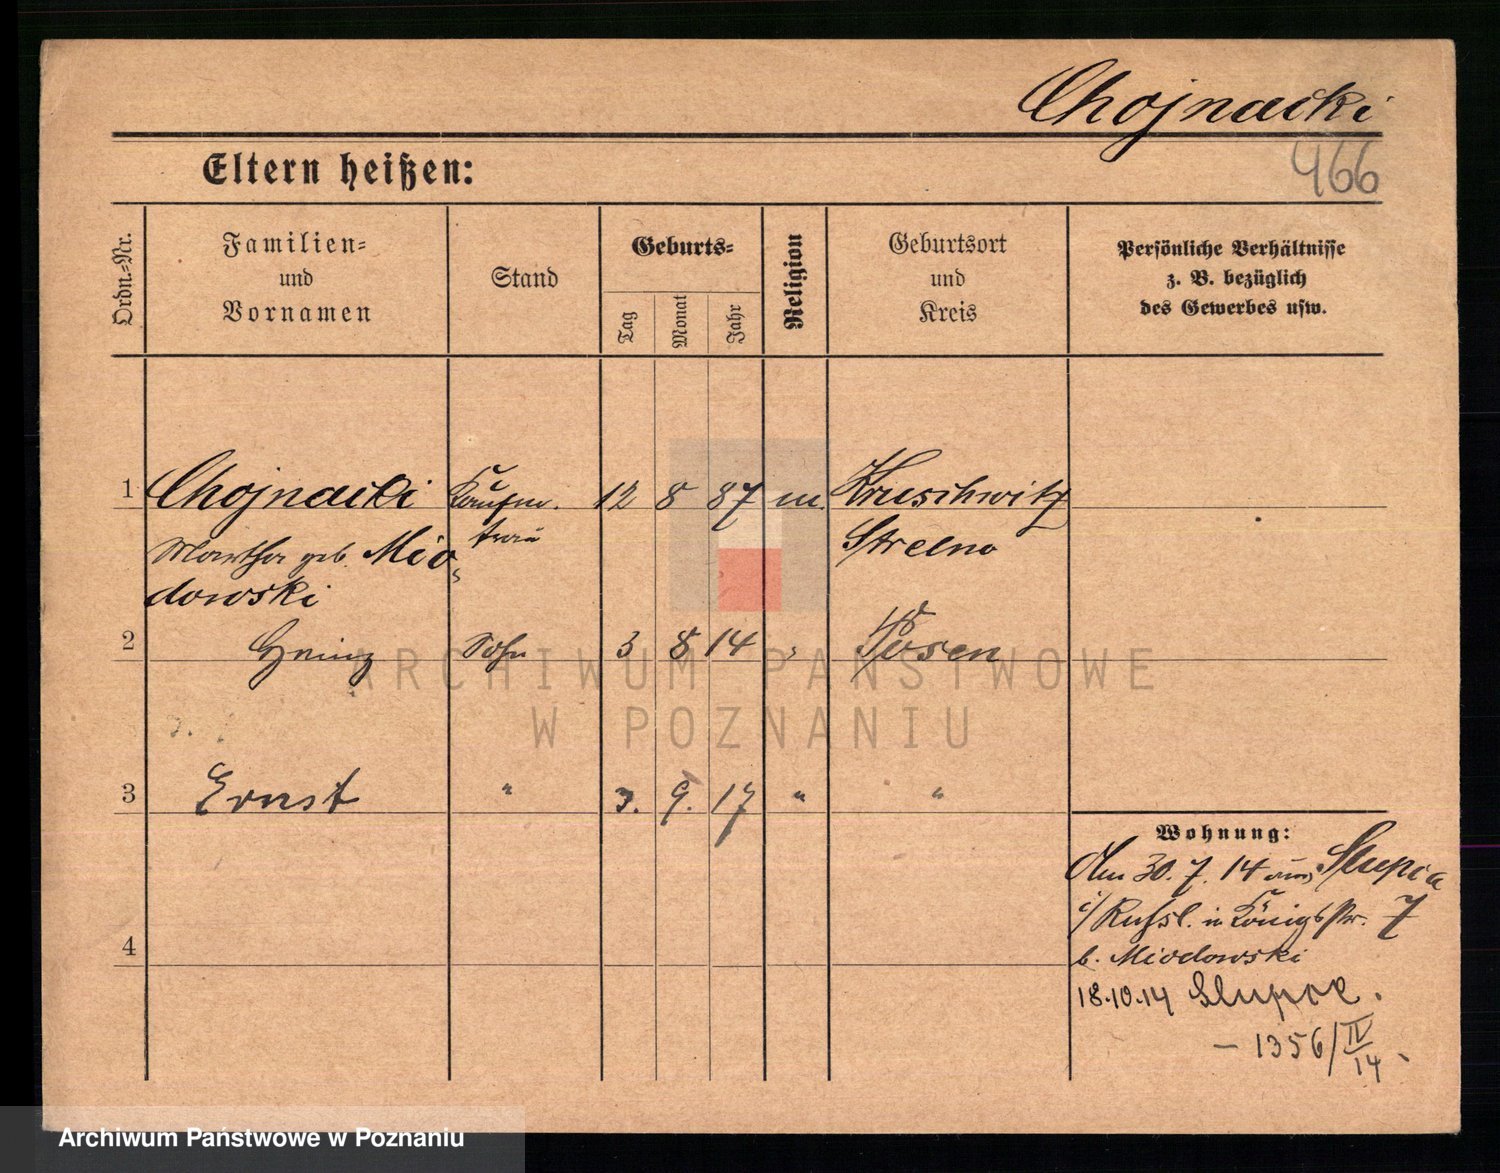 Chojnacki
966
Eltern heißen:
Ordn.-Nr.
Familien-
und
Vornamen
Stand
Geburts-
Tag
Monat
Jahr
Religion
Geburtsort
und
Kreis
Persönliche Verhältnisse
z. B. bezüglich
des Gewerbes usw.
1 Chojnacki Kaufm. 12 8 87 m. Kruschwitz
frau
Martha geb. Mio- Strelno
dowski
2 Heinz Sohn 3 8 14 " Posen
3 Ernst " 3. 9. 17 " "
Wohnung:
Am 30. 7. 14 aus Slupia
i/Rußl. in Königstr. 7
b. Miodowski
4
18.10.14 Slupce.
– 1356/IV
14
ARCHIWUM PAŃSTWOWE
W POZNANIU
Archiwum Państwowe w Poznaniu